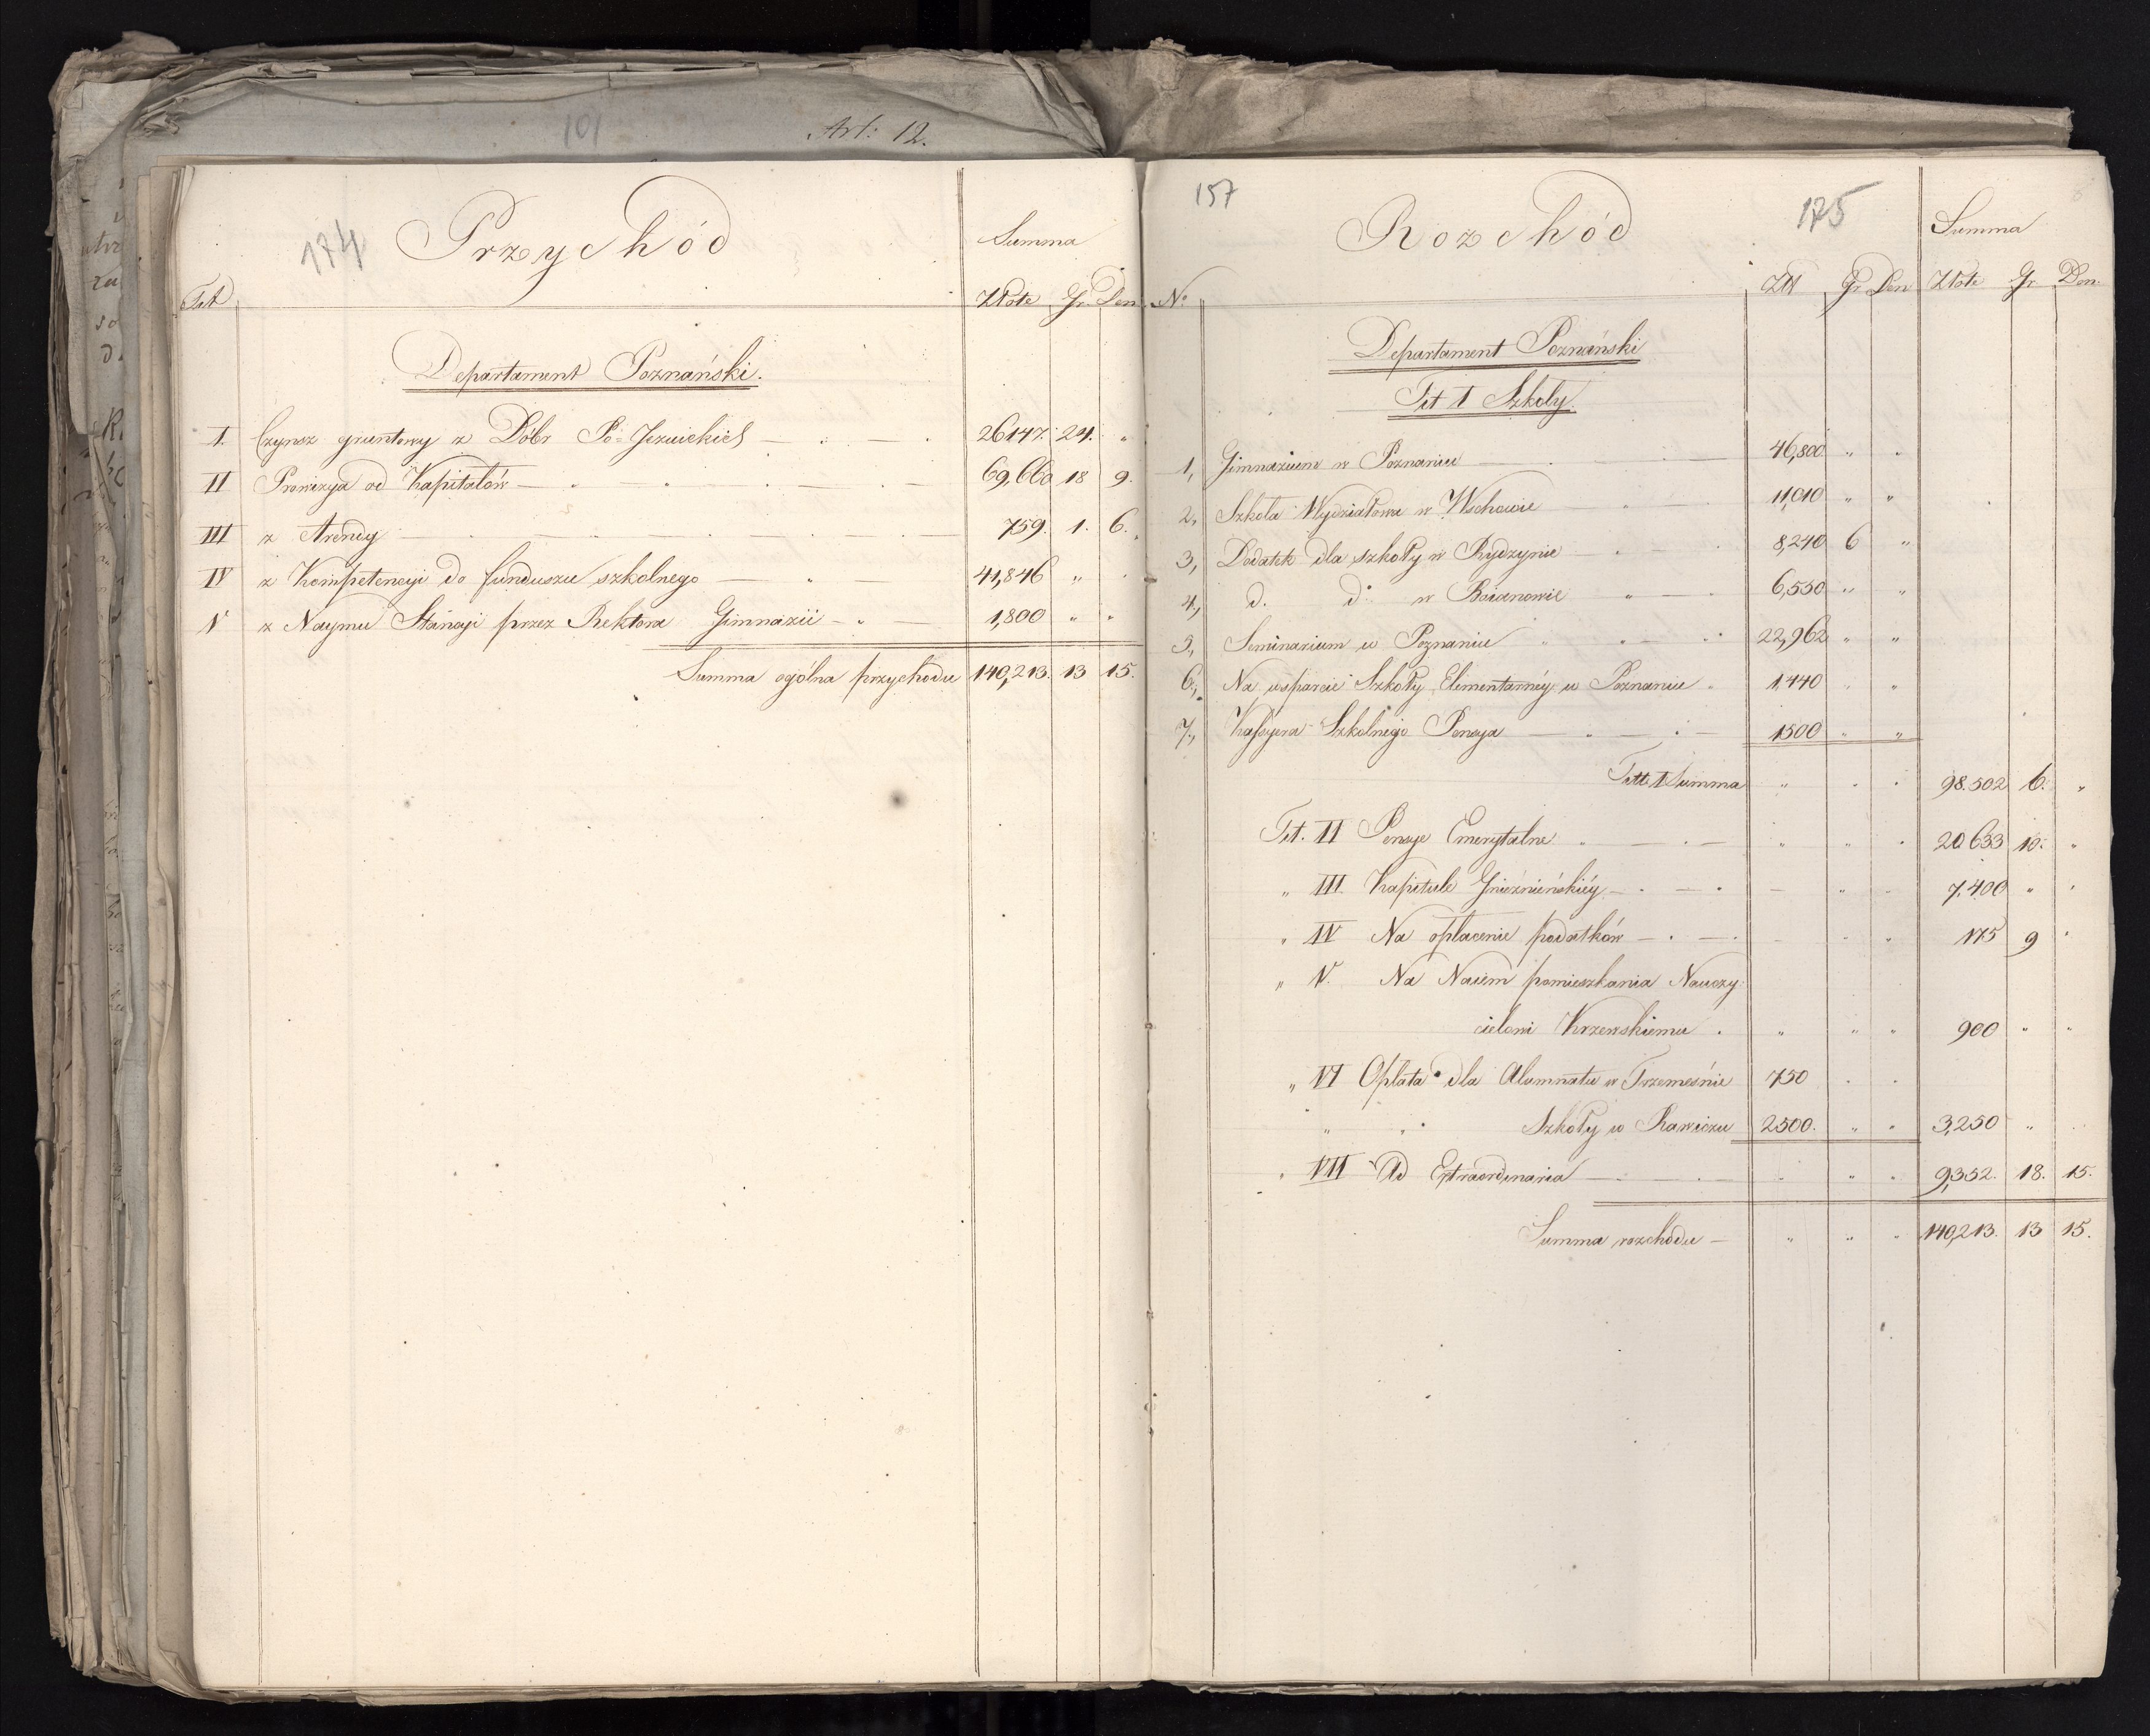 101
Art: 12.
174
Przychód
Summa
Tit
Złote Gr Den
Departament Poznański.
I. Czynsz gruntowy z Dóbr Po-Jezuickich 26147. 24. "
II Prowizya od Kapitałów 69,660 18 9.
III z Arendy 759. 1. 6.
IV z Kompetencyi do funduszu szkolnego 41,846 " "
V z Naymu Stancyi przez Rektora Gimnazii 1,800 " "
Summa ogólna przychodu 140,213. 13 15.
157
175
Rozchód
Summa
No
Złł Gr Den Złote Gr Den.
Departament Poznański
Tit I Szkoły.
1, Gimnazium w Poznaniu 46,800 " "
2, Szkoła Wydziałowa w Wschowie 11,010 " "
3, Dodatek dla szkoły w Rydzynie 8,240 6 "
4, d. d: w Boianowie 6,550 " "
5, Seminarium w Poznaniu 22,962 " "
6, Na wsparcie Szkoły Elementarnéy w Poznaniu 1,440 " "
7, Kassyera Szkolnego Pensya 1500 " "
Titt. I Summa " " " 98.502 6. "
Tit. II Pensye Emerytalne " " " 20633 10. "
" III Kapitule Gnieźnieńskiéy 7,400 " "
" IV Na opłacenie podatków 175 9 "
" V. Na Naiem pomieszkania Nauczy-
cielowi Krzewskiemu " " " 900 " "
" VI Opłata dla Alumnatu w Trzemesnie 750
" " Szkoły w Rawiczu 2500. " " 3,250 "
" VII Ad Extraordinaria " " " 9,352. 18. 15.
Summa rozchodu " " " 140,213. 13 15.